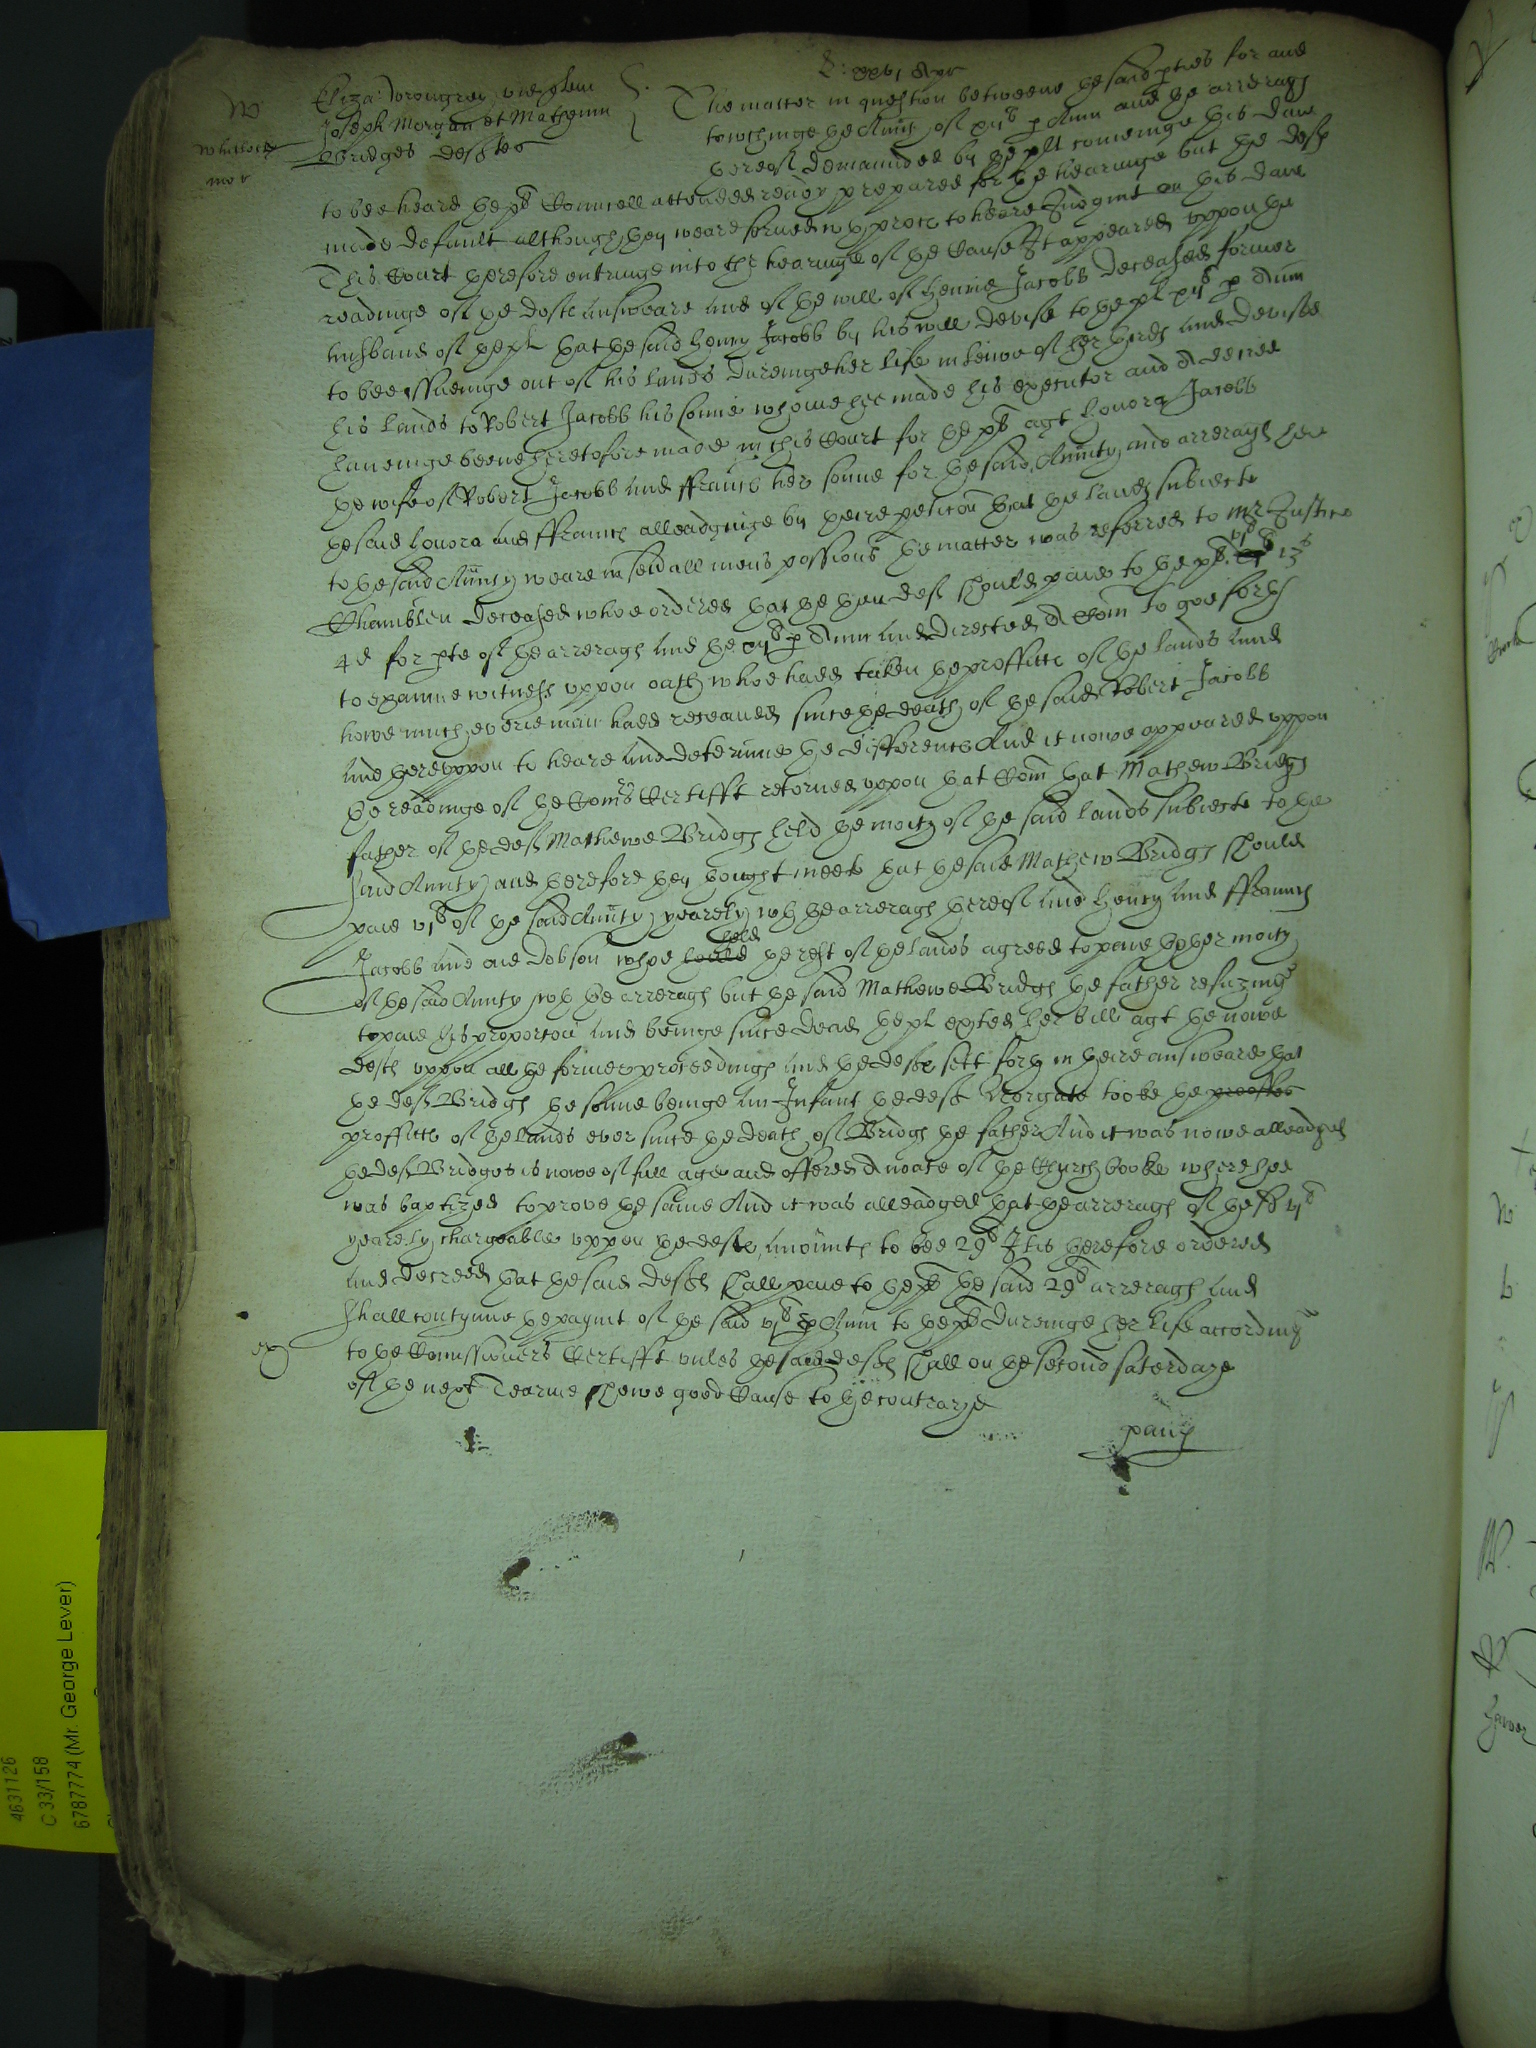 W
Eliza vid quer
Joseph Morgan et Matheum
Bridges defts
Whitlock
mor
The matter in question betweene the said pties for and
towchinge the Anuity of xijl p Annu and the arreragℯ
thereof demaunded by the plt cominge this daie
to bee heard the pls Councell attended readie prepared for the hearinge but the defℯ
made default although they weare served wth proces to heare Judgmt on this daie
This Court therefore entringe into the hearinge of the Cause It appeared uppon the
readinge of the defts answeare and of the will of Henrie Jacobb deceased former
husband of the pl that the said Henry Jacobb by his will devise to the pl xijl p Annu
to bee issueinge out of his lands dureinge her life in liewe of her thirds and devised
his lands to Robert Jacobb his sonne whome hee made his executor and A decree
haveinge beene heretofore made in this Court for the pl agt Honora Jacobb
the wife of Robert Jacobb and ffrancis her sonne for the said Anuity and arreragℯ
the said Honora and ffrancis alleadginge by theire peticon that the lands subiecte
to the said Anuity weare in seuall mens possions the matter was referred to Mr Justice
Chamblen deceased whoe ordered that the then deft should paie to the pl vjl 13s
4d for pte of the arreragℯ and the vjl p Annu and directed A Comn to goe forth
to examine witnesses uppon oath whoe hadd taken the proffitts of the lands and
howe much everie man hadd receaved since the death of the said Robert Jacobb
and thereuppon to heare and determine the differences And it nowe appeared uppon
the readinge of the Comrs Certifft retorned uppon that Comn that Mathew Bridgℯ
father of the deft Mathewe Bridgℯ held the moity of the said lands subiecte to the
said Anuity and therefore they thought meete that the said Mathew Bridgℯ should
paie vjl of the said Anuity yearely wth the arreragℯ thereof and Henry and ffrancis
Jacobb and one Dobson whoe held the rest of the lands agreed to paie thother moity
of the said Anuity wth the arreragℯ but the said Mathewe Bridgℯ the father refuzinge
to paie his proporcon and beinge since dead the pl exted her bill agt the nowe
defts uppon all the former proceedingℯ and the defts sett forth in theire answeare that
the deft Bridgℯ the sonne beinge an Infant the deft Morgan tooke the
proffitts of the lands ever since the death of Bridgℯ the father And it was nowe alleadged
the deft Bridges is nowe of full age and offered A noate of the Church booke where hee
was baptized to prove the same And it was alleadged that the arreragℯ of the sd vjl
yearely chargeable uppon the defts amounts to bee 29l It is therefore ordered
and decreed that the said defts shall paie to the pl the said 29l arreragℯ and
shall contynue the paymt of the said vjl p Annu to the pl dureinge her life accordinge
ex
to the Comissioners Certifft unles the said defts shall on the second saterdaye
of the next Tearme shewe good Cause to the contrarye
4631126
C 33/158
6787774 (Mr. George Lever)